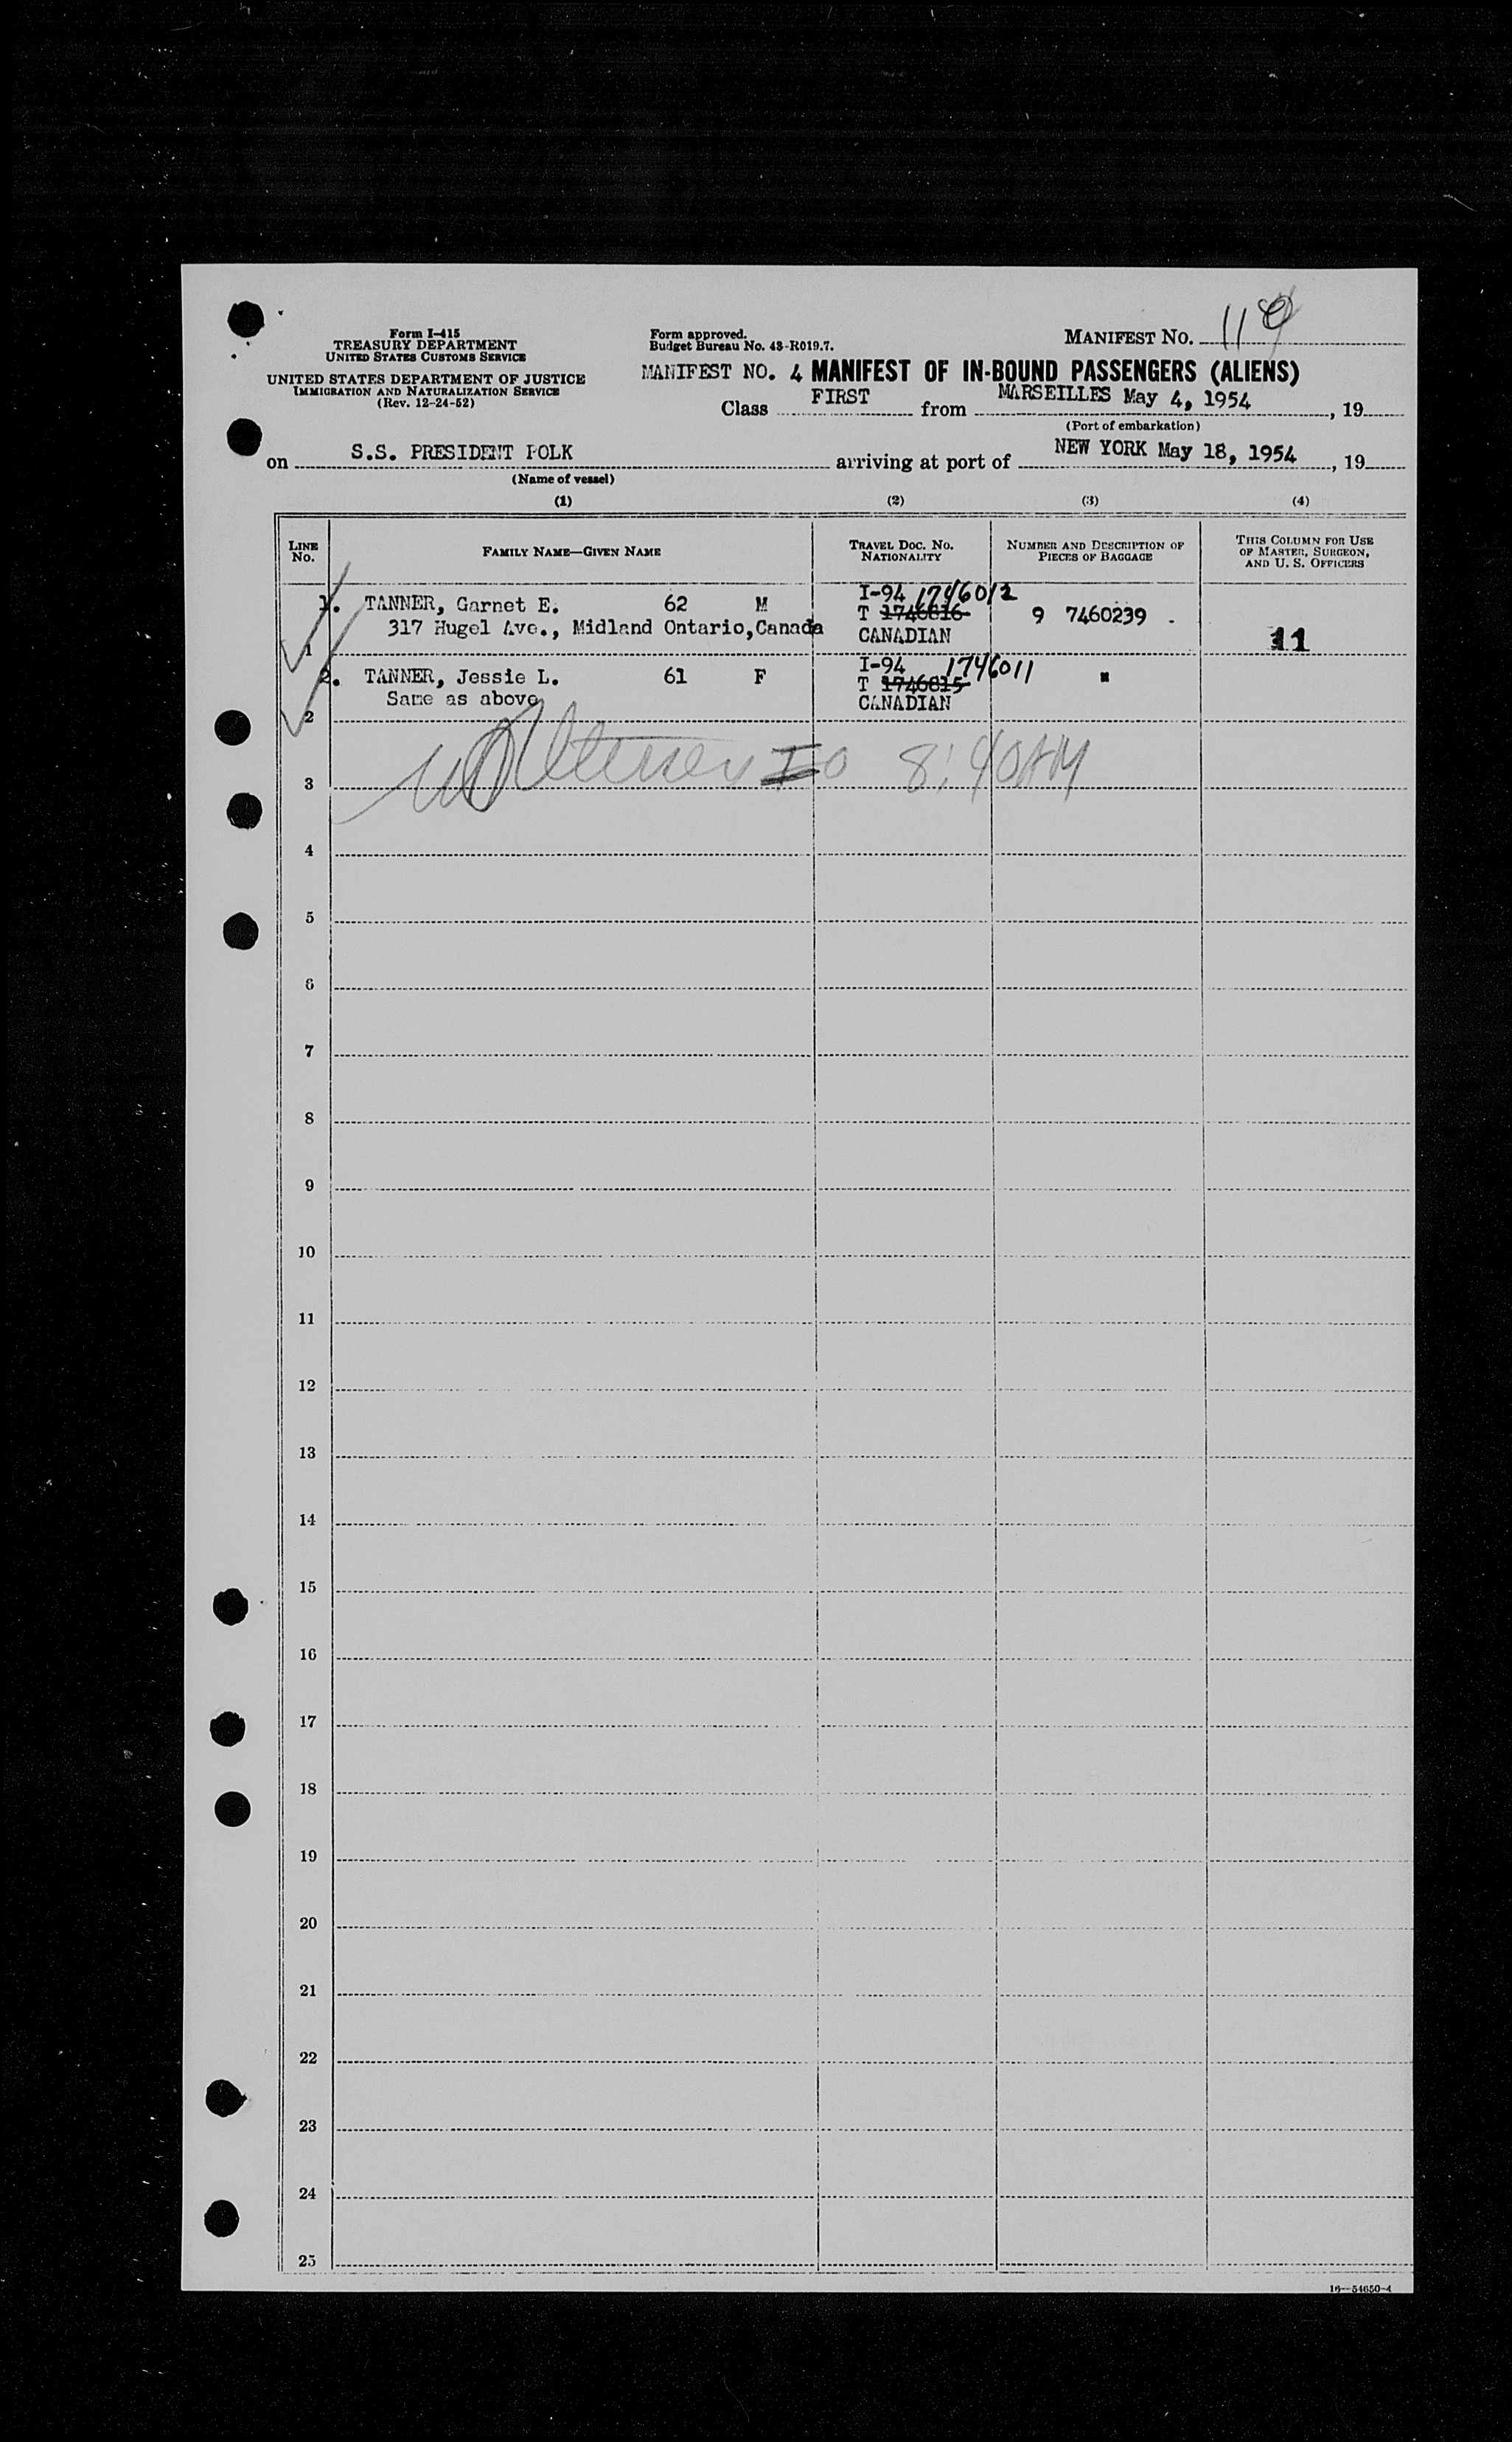 Form I-415
TREASURY DEPARTMENT
UNITED STATES CUSTOMS SERVICE
UNITED STATES DEPARTMENT OF JUSTICE
IMMIGRATION AND NATURALIZATION SERVICE
(Rev. 12-24-52)
Form approved.
Budget Bureau No. 43-R019.7.
MANIFEST No.
MANIFEST NO. 4 MANIFEST OF IN-BOUND PASSENGERS (ALIENS)
Class FIRST from MARSEILLES May 4, 1954, 19
(Port of embarkation)
on S.S. PRESIDENT POLK arriving at port of NEW YORK May 18, 1954, 19
(Name of vessel)
(1) (2) (3) (4)
LINE No.
FAMILY NAME—GIVEN NAME
TRAVEL DOC. NO. NATIONALITY
NUMBER AND DESCRIPTION OF PIECES OF BAGGAGE
THIS COLUMN FOR USE OF MASTER, SURGEON, AND U. S. OFFICERS
1. TANNER, Garnet E. 62 M I-94 1746012
317 Hugel Ave., Midland Ontario, Canada T 1746816 9 7460239
1 CANADIAN 11
2. TANNER, Jessie L. 61 F I-94 1746011
Same as above T 1746815 "
2 CANADIAN
8:40AM
3
4
5
6
7
8
9
10
11
12
13
14
15
16
17
18
19
20
21
22
23
24
25
16—54650-4